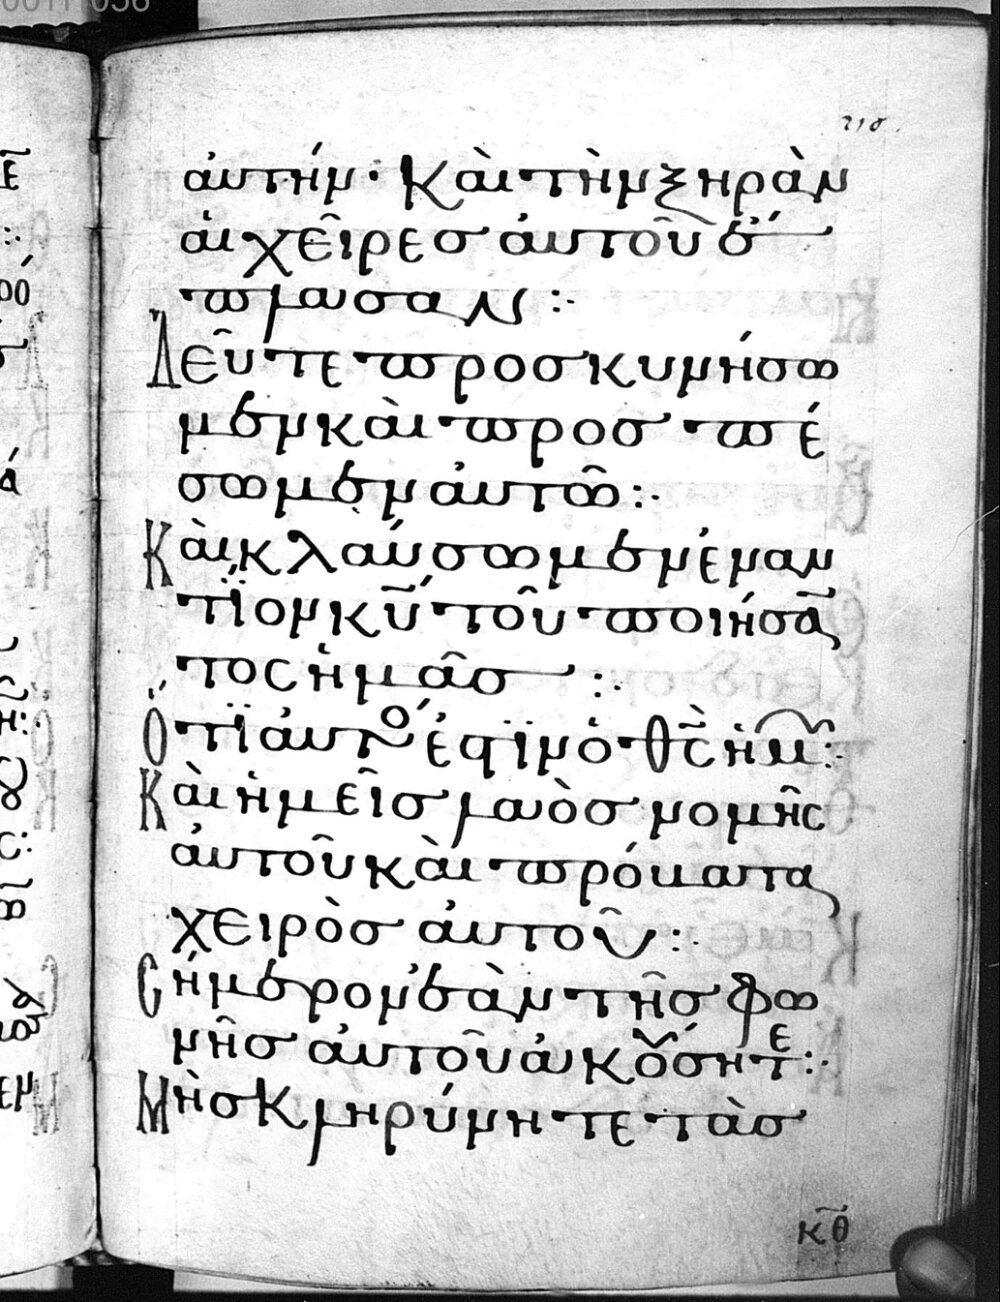 218.
αὐτήν· Καὶ τὴν ξηρὰν
αἱ χεῖρες αὐτοῦ ἔ
πλασαν :·
Δεῦτε προσκυνήσω
μεν καὶ προσπέ
σωμεν αὐτῶ :·
Καὶ κλαύσωμεν ἐναν
τίον κ̅υ̅ τοῦ ποιήσα̅
τος ἡμᾶς :·
Ὅτι αὐτο ἐϲτϊν ὁ θ̅ς̅ ἡμ :·
Καὶ ἡμεῖς λαὸς νομῆς
αὐτοῦ καὶ πρόβατα
χειρὸς αὐτοῦ :·
Σήμερον ἐὰν τῆς φω
νῆς αὐτοῦ ἀκούσητε :·
Μὴ σκληρύνητε τὰς
κ̅θ̅